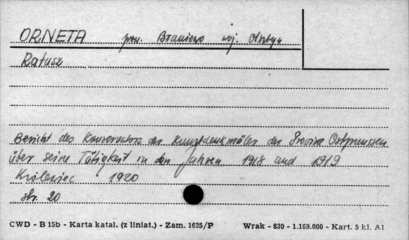 ORNETA pow. Braniewo woj. Olsztyn
Ratusz
Bericht des Konservators der Kunstdenkmäler der Provinz Ostpreussen
über seine Tätigkeit in den Jahren 1918 und 1919
Królewiec 1920
str. 20
CWD - B 15b - Karta katal. (z liniat.) - Zam. 1625/P Wrak - 830 - 1.169.000 - Kart. 5 kl. A1